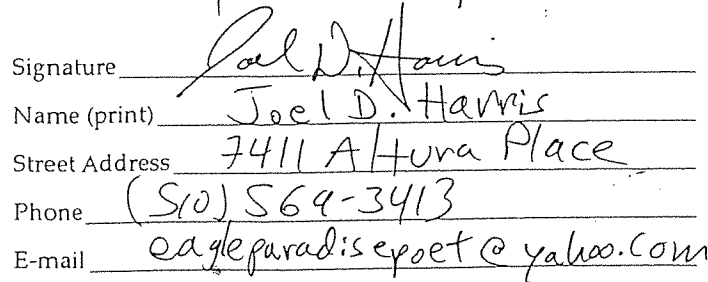 Signature Joel D. Harris
Name (print) Joel D. Harris
Street Address 7411 Altura Place
Phone (510) 569-3413
E-mail eagleparadisepoet@yahoo.com